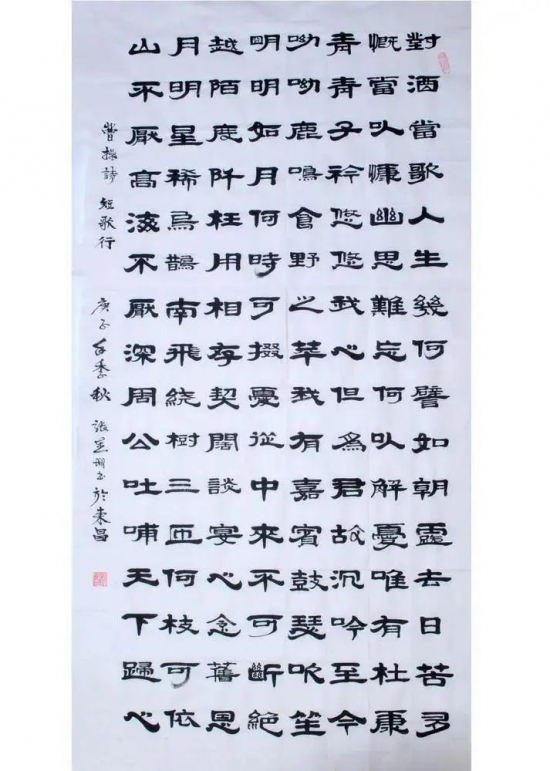 對酒當歌人生幾何譬如朝露去日苦多
慨當以慷幽思難忘何以解憂唯有杜康
青青子衿悠悠我心但為君故沉吟至今
呦呦鹿鳴食野之苹我有嘉賓鼓瑟吹笙
明明如月何時可掇憂從中來不可斷絕
越陌度阡枉用相存契闊談宴心念舊恩
月明星稀烏鵲南飛繞樹三匝何枝可依
山不厭高海不厭深周公吐哺天下歸心
曹操詩 短歌行 庚子年季秋 張書於東昌